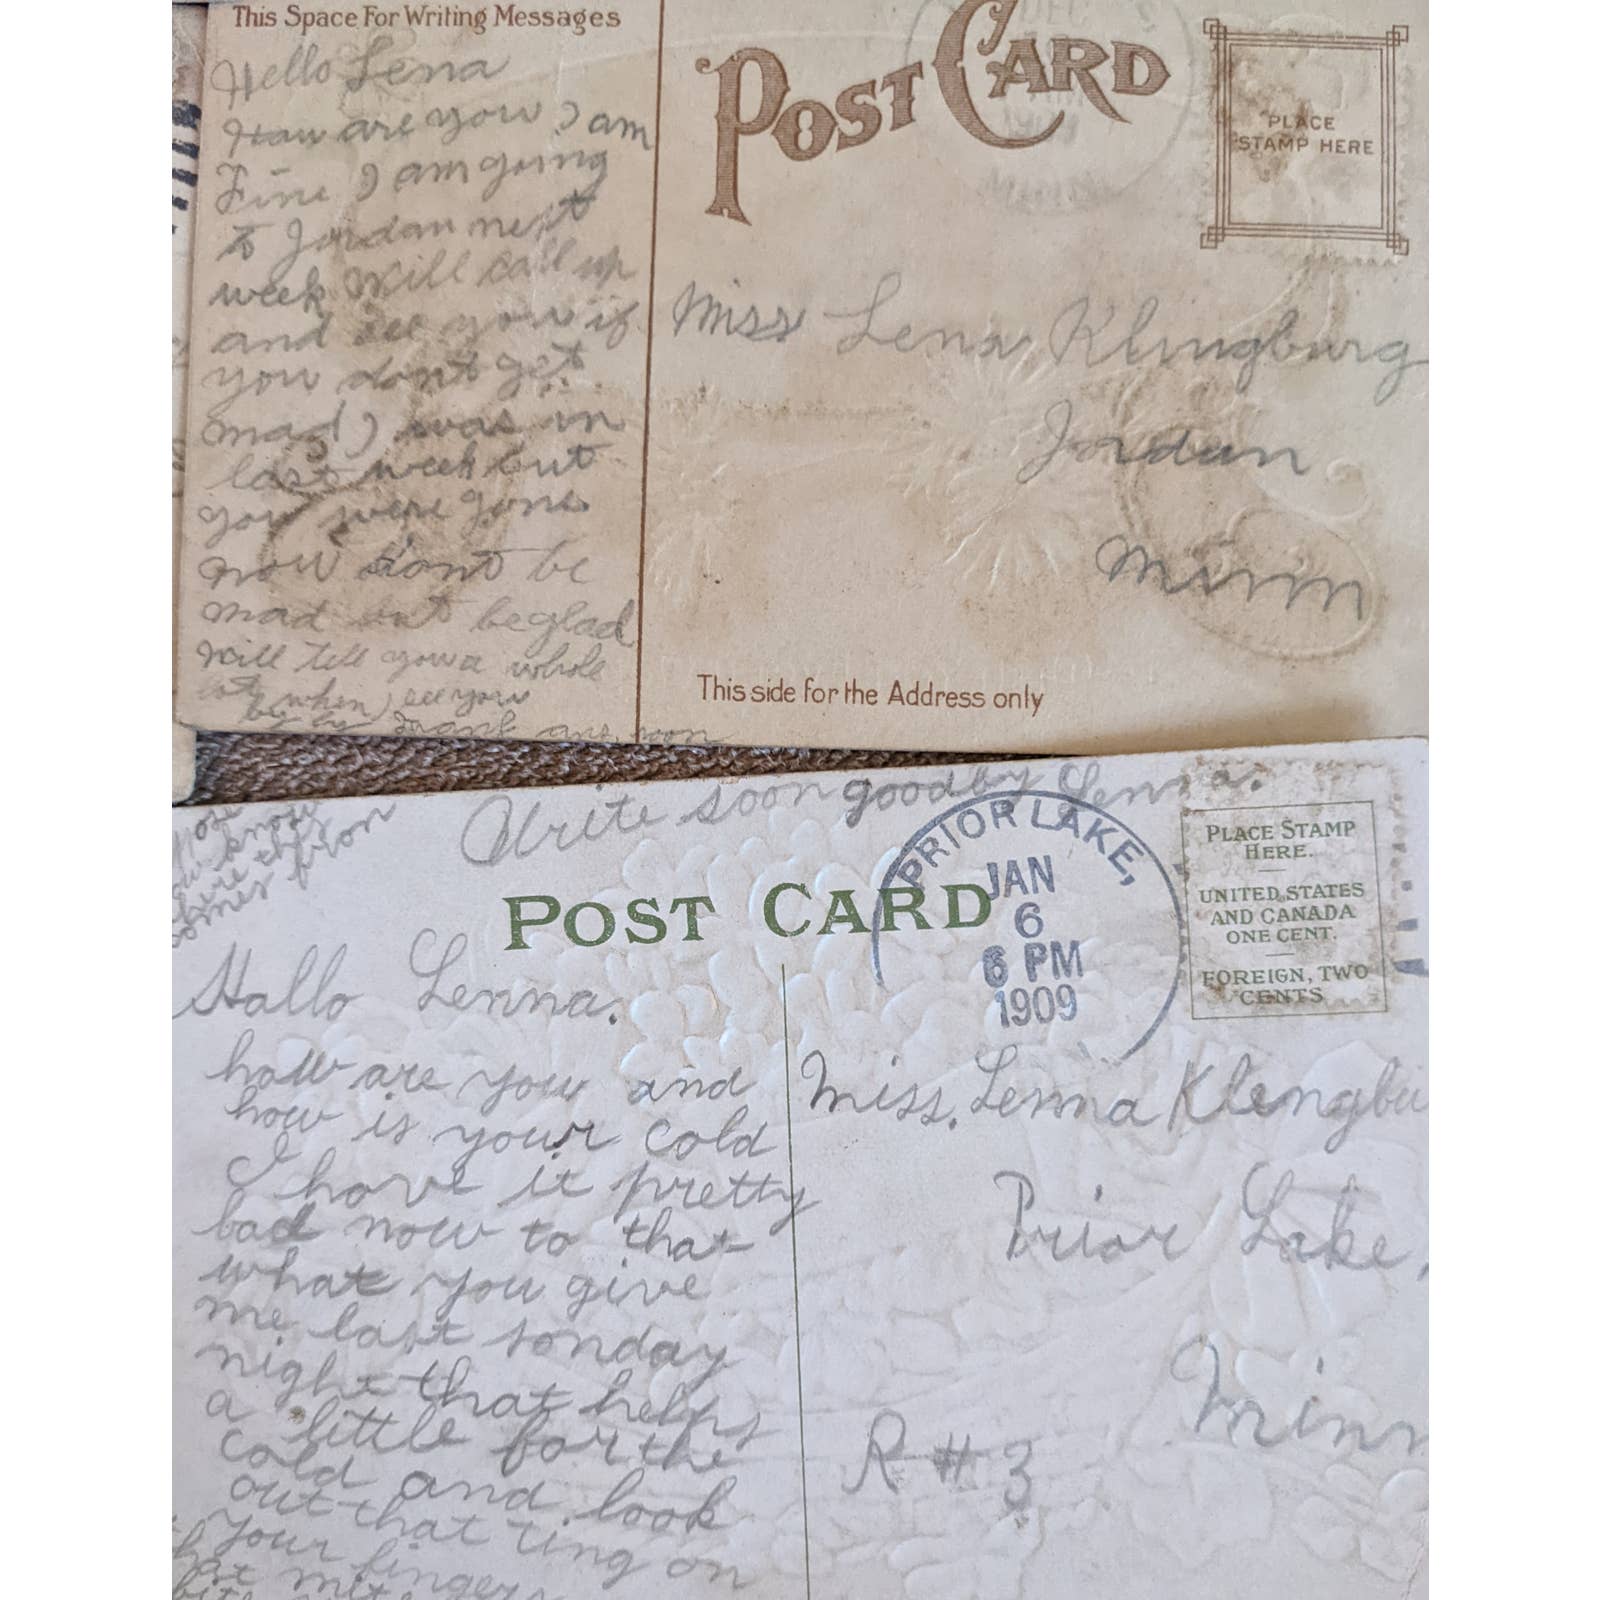 This Space For Writing Messages
Hello Lena
How are you I am
Fine I am going
to Jordan next
week Will call up
and see you if
you dont get
mad I was in
last week but
you were gone
now dont be
mad but be glad
Will tell you a whole
lot when I see you
by by Frank ans. soon
POST CARD
PLACE
STAMP HERE
Miss Lena Klingburg
Jordan
Minn
This side for the Address only
know
where this
comes from
Write soon goodby Lenna.
POST CARD
PRIOR LAKE,
JAN
6
6 PM
1909
PLACE STAMP
HERE.
UNITED STATES
AND CANADA
ONE CENT.
FOREIGN, TWO
CENTS
Hallo Lenna.
how are you and
how is your cold
I have it pretty
bad now to that
what you give
me last sonday
night that helps
a little for the
cold and look
out that ring on
your fingers
Miss. Lenna Klengbu
Prior Lake,
Minn
R # 3